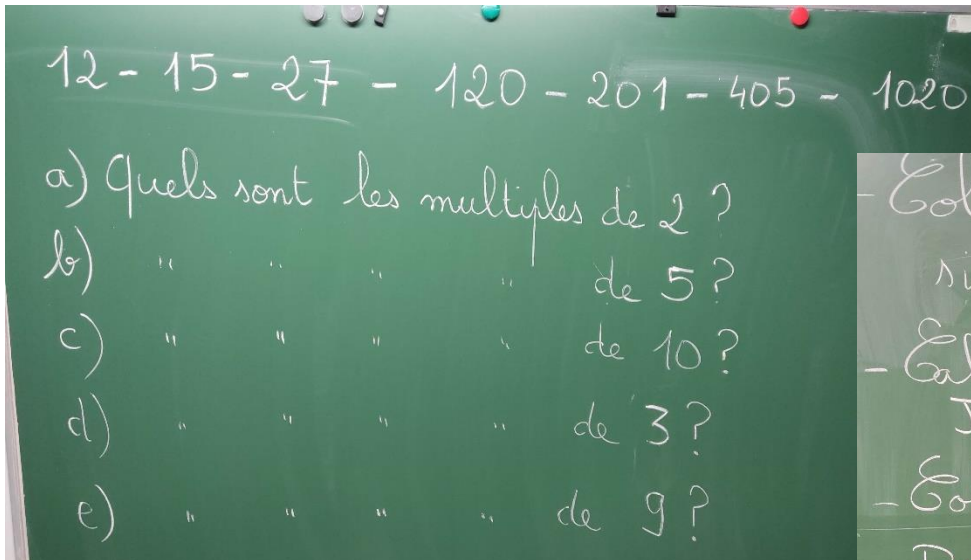 12 - 15 - 27 - 120 - 201 - 405 - 1020
a) Quels sont les multiples de 2 ?
b) " " " " de 5 ?
c) " " " " de 10 ?
d) " " " " de 3 ?
e) " " " " de 9 ?